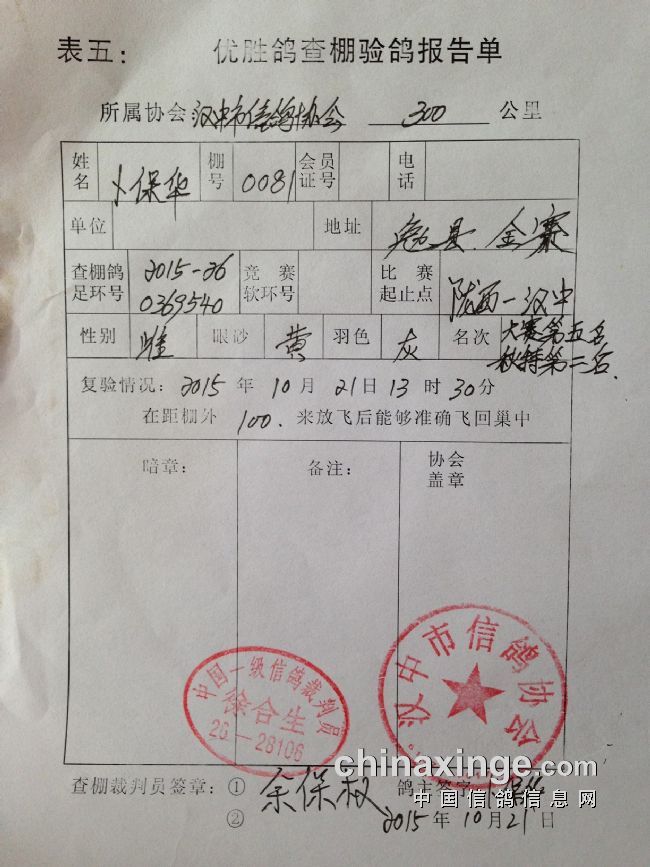 表五： 优胜鸽查棚验鸽报告单
所属协会 汉中市信鸽协会 300 公里
姓名 卜保华 棚号 0081 会员证号 电话
单位 地址 勉县 金寨
查棚鸽足环号 2015-26 0369540 竞赛软环号 比赛起止点 陇西－汉中
性别 雌 眼沙 黄 羽色 灰 名次 大赛第五名 秋特第二名.
复验情况：2015 年 10 月 21 日 13 时 30 分
在距棚外 100. 来放飞后能够准确飞回巢中
暗章： 备注： 协会盖章
中国一级信鸽裁判员
徐合生
26－28106
汉中市信鸽协会
chinaxinge.com
查棚裁判员签章：① 余保权 鸽主签字
中国信鸽信息网
② 2015 年 10 月 21 日